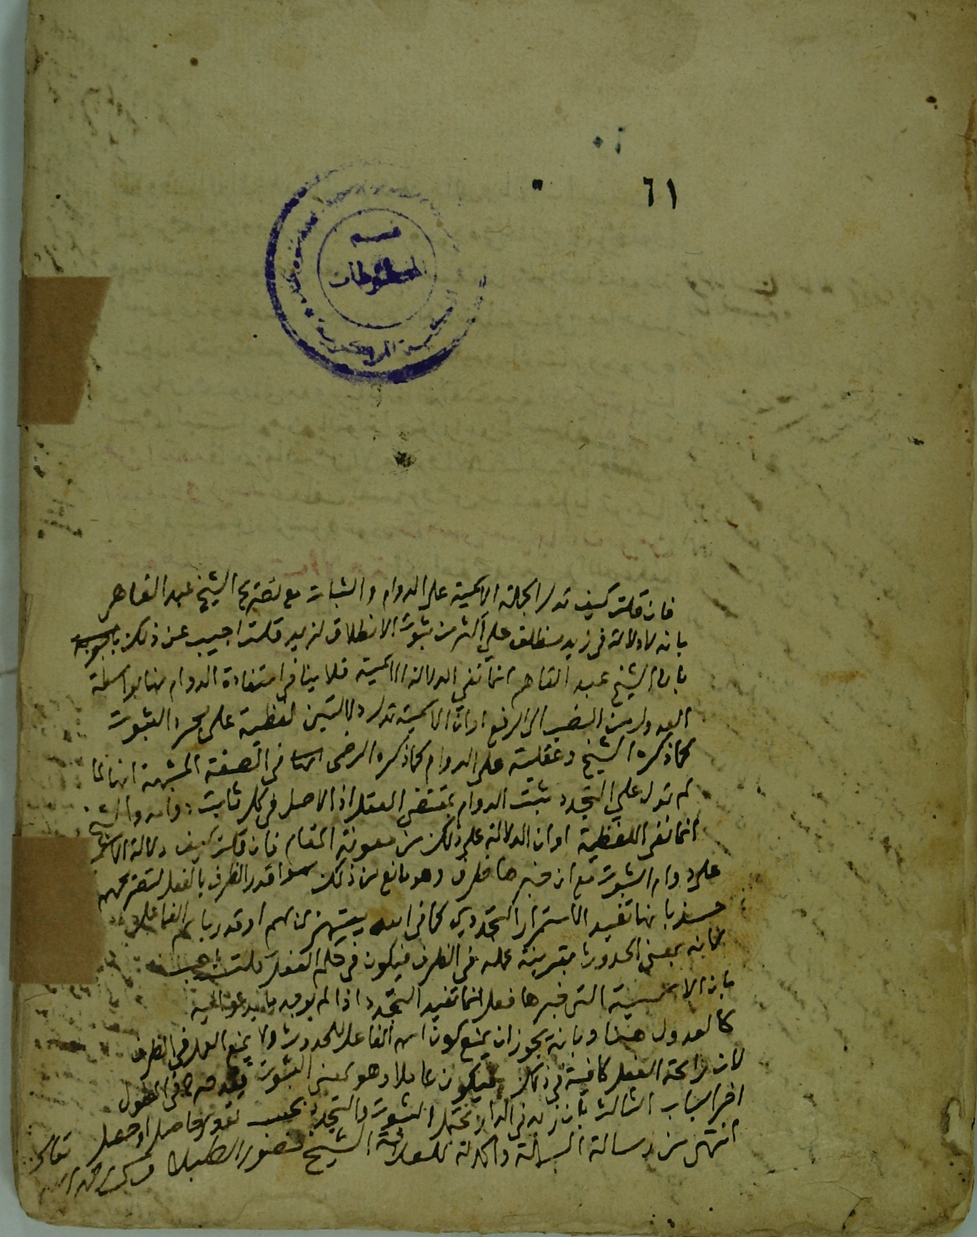 ٦١
قسم
المخطوطات
فان قلت كيف تدل الجملة الاسمية على الدوام والثبات مع تصريح الشيخ عبد القاهر
بانه لا دلالة فى زيد منطلق على اكثر من ثبوت الانطلاق لزيد قلت اجيب عن ذلك
بان الشيخ عبد القاهر انما نفى الدلالة الاسمية فلا ينافى استفادة الدوام منها بواسطة
العدول من النصب الى الرفع او ان الاسمية تدل دلالتين لفظية على مجرد الثبوت
كما ذكره الشيخ وعقلية على الدوام كما ذكره الرضى فى الصفة المشبهة انها لما
لم تدل على التجدد ثبت الدوام بمقتضى العقل اذ الاصل فى كل ثابت دوامه والشيخ
انما نفى اللفظية او ان الدلالة على ذلك من معونة المقام فان قلت كيف دلالة
على دوام الثبوت مع ان خبرها ظرف وهو مانع من ذلك سواء قدر الظرف بالفعل لتصريحهم
حينئذ بانها تفيد الاستمرار التجددى كما فى الله يستهزئ بهم او قدر باسم الفاعل
لانه بمعنى الحدوث بقرينة عمله فى الظرف فيكون فى حكم الفعل قلت
بان الاسمية التى خبرها فعل انما تفيد التجدد اذا لم يوجد
كالعدول هنا وبانه يجوز ان يمنع كون اسم الفاعل للحدوث ولا يمنع العمل فى الظرف
لان رائحة الفعل كافية فى ذلك فيكون عاملا وهو بمعنى الثبوت وقد صرح فى المطول
اخر الباب الثالث بان زيد فى الدار يحتمل الثبوت والتجدد بحسب تقدير حاصل او حصل
انتهى من رسالة البسملة والحمدلة للعلامة الشيخ منصور الطبلاوى رحمه الله تعالى